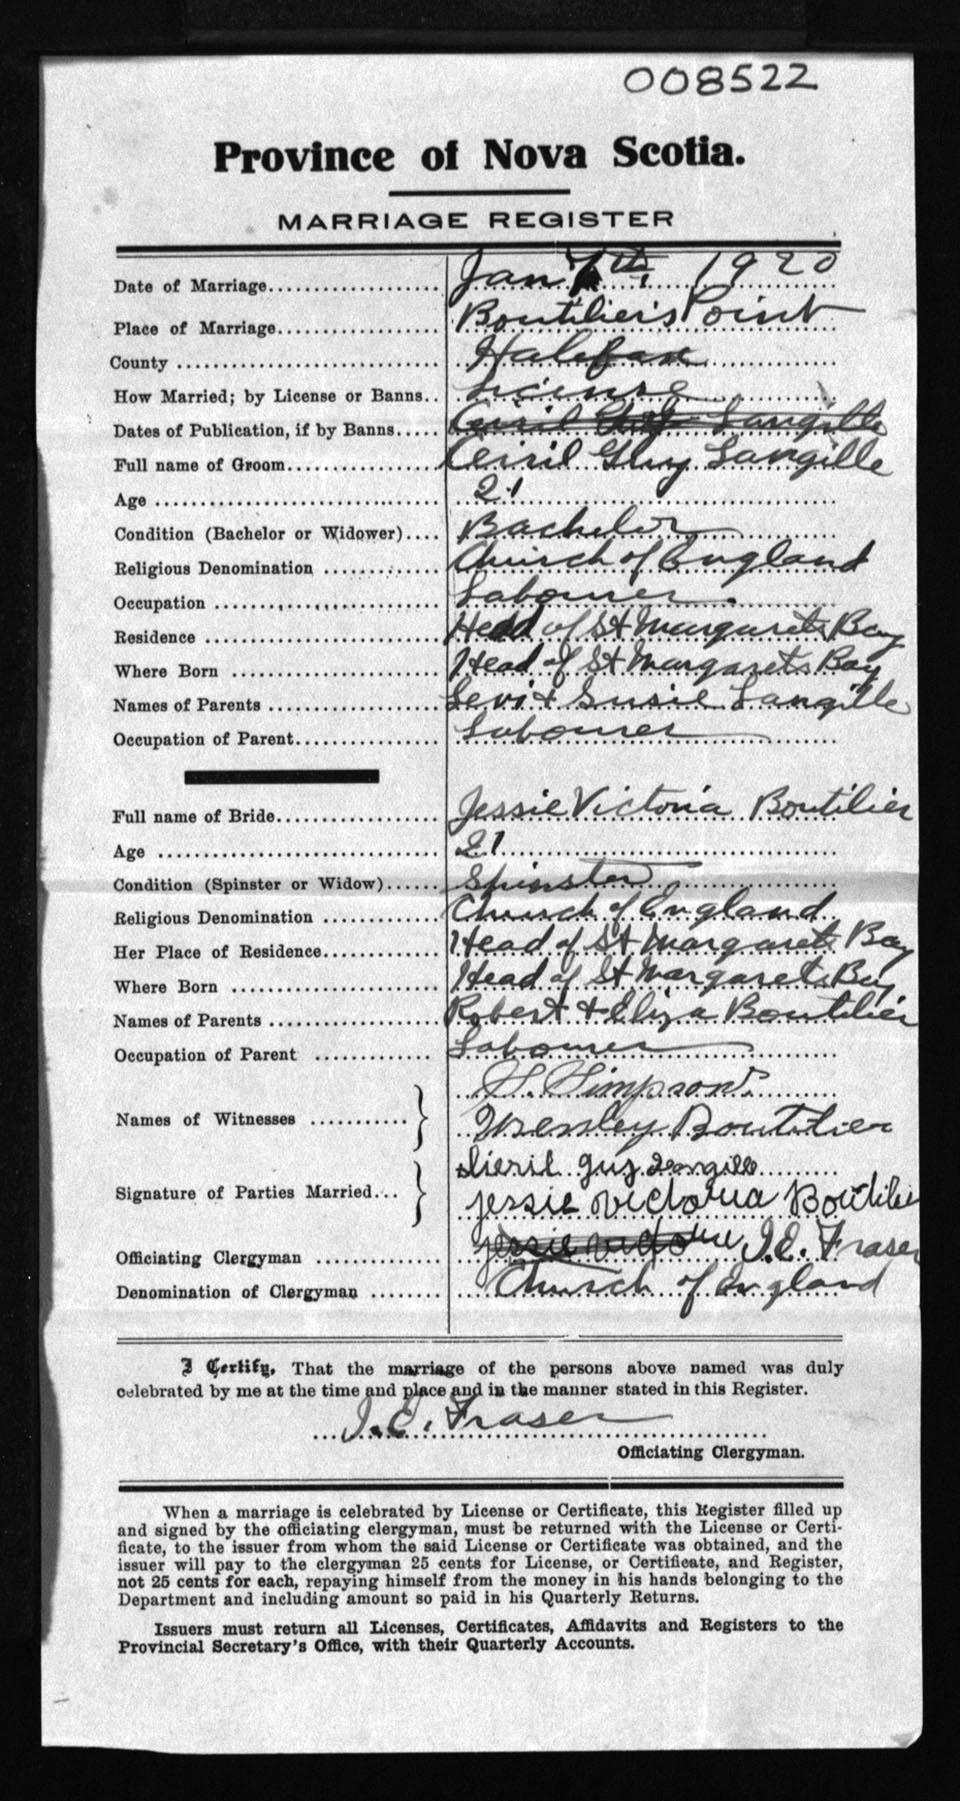 008522
Province of Nova Scotia.
MARRIAGE REGISTER
Date of Marriage Jan 7th. 1920
Place of Marriage Boutiliers Point
County Halifax
How Married; by License or Banns License
Dates of Publication, if by Banns Langille
Full name of Groom Ceiril Guy Langille
Age 21
Condition (Bachelor or Widower) Bachelor
Religious Denomination Church of England
Occupation Labourer
Residence Head of St Margarets Bay
Where Born Head of St Margarets Bay
Names of Parents Levi + Susie Langille
Occupation of Parent Labourer
Full name of Bride Jessie Victoria Boutilier
Age 21
Condition (Spinster or Widow) Spinster
Religious Denomination Church of England
Her Place of Residence Head of St Margarets Bay
Where Born Head of St Margarets Bay
Names of Parents Robert + Eliza Boutilier
Occupation of Parent Labourer
Simpson
Names of Witnesses
Wensley Boutilier
Guy Langille
Signature of Parties Married
Jessie Victoria Boutilier
Officiating Clergyman Jessie Victoria J.E. Fraser
Denomination of Clergyman Church of England
I Certify, That the marriage of the persons above named was duly
celebrated by me at the time and place and in the manner stated in this Register.
J.E. Fraser
Officiating Clergyman.
When a marriage is celebrated by License or Certificate, this Register filled up
and signed by the officiating clergyman, must be returned with the License or Certi-
ficate, to the issuer from whom the said License or Certificate was obtained, and the
issuer will pay to the clergyman 25 cents for License, or Certificate, and Register,
not 25 cents for each, repaying himself from the money in his hands belonging to the
Department and including amount so paid in his Quarterly Returns.
Issuers must return all Licenses, Certificates, Affidavits and Registers to the
Provincial Secretary's Office, with their Quarterly Accounts.